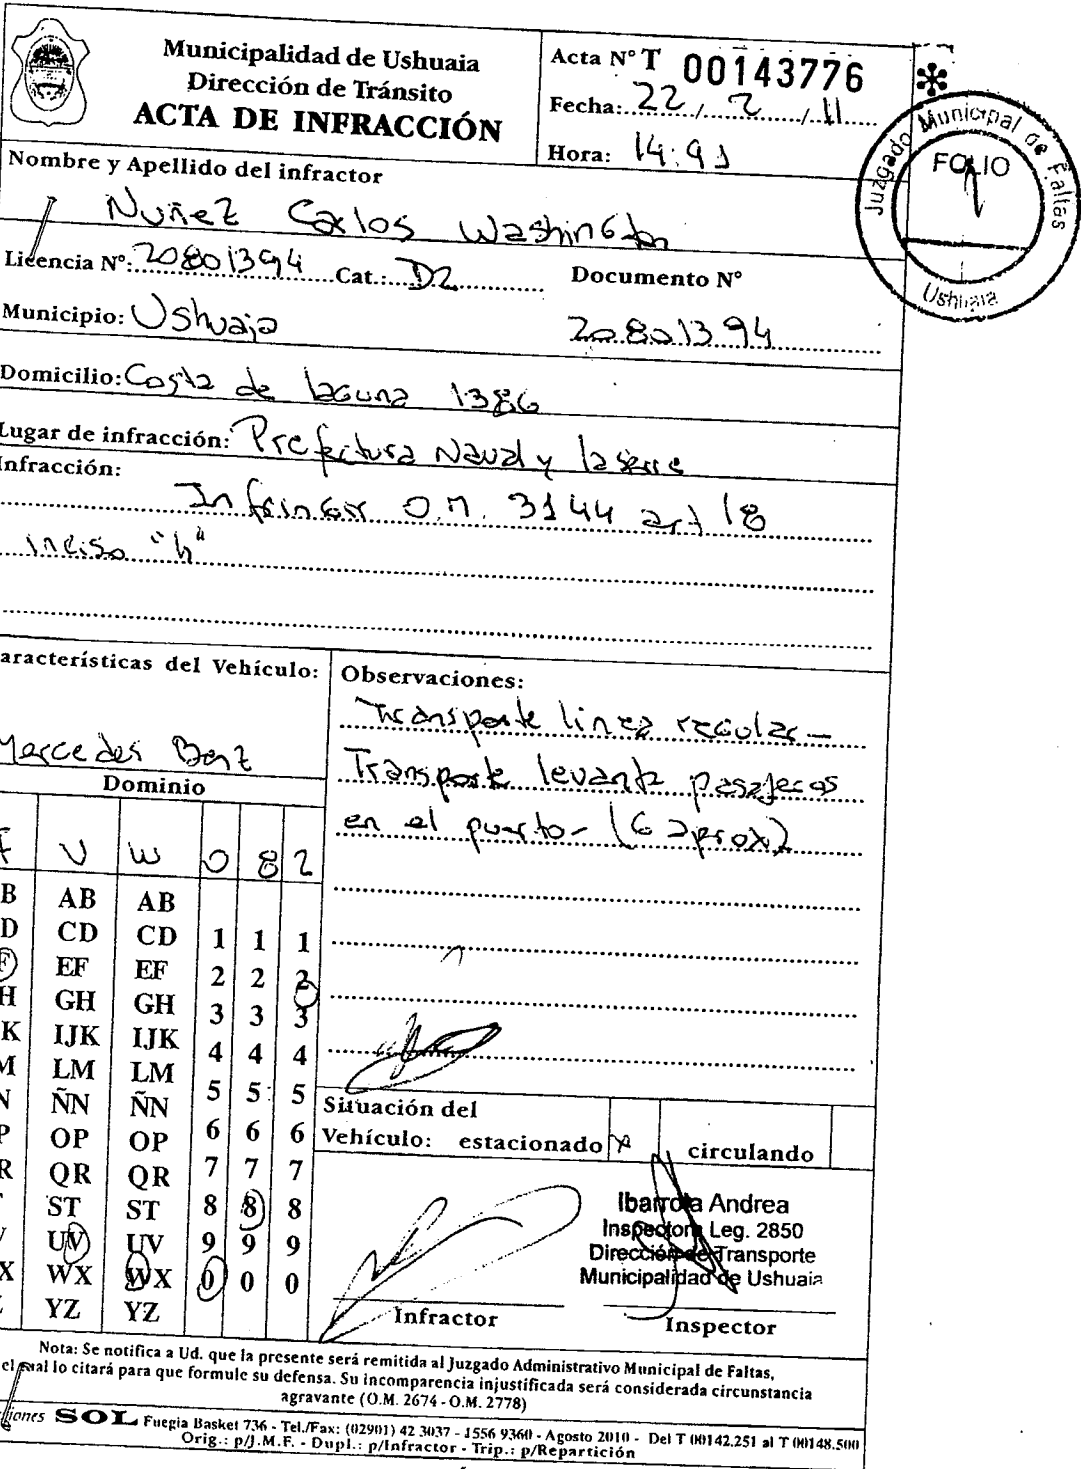 Municipalidad de Ushuaia
Dirección de Tránsito
ACTA DE INFRACCIÓN
Acta N° T 00143776
Fecha: 22 / 2 / 11
Hora: 14:91
Juzgado Municipal de Faltas
FOLIO
1
Ushuaia
Nombre y Apellido del infractor
Nuñez Carlos Washington
Licencia N°: 20801394 Cat.: D2 Documento N°
Municipio: Ushuaia 20801394
Domicilio: Costa de laguna 1386
Lugar de infracción: Prefectura Naval y laserre
Infracción:
Infringir O.M. 3144 art 18
inciso "h"
aracterísticas del Vehículo:
Mercedes Benz
Observaciones:
Transporte linea regular -
Transporte levanta pasajeros
en el puerto - (6 aprox)
Dominio
F V W 0 8 2
B AB AB
D CD CD 1 1 1
F EF EF 2 2 2
H GH GH 3 3 3
K IJK IJK 4 4 4
M LM LM 5 5 5
N ÑN ÑN 6 6 6
P OP OP 7 7 7
R QR QR 8 8 8
T ST ST 9 9 9
V UV UV 0 0 0
X WX WX
Z YZ YZ
Situación del
Vehículo: estacionado x circulando
Ibarrola Andrea
Inspectora Leg. 2850
Dirección de Transporte
Municipalidad de Ushuaia
Infractor
Inspector
Nota: Se notifica a Ud. que la presente será remitida al Juzgado Administrativo Municipal de Faltas,
el cual lo citará para que formule su defensa. Su incomparencia injustificada será considerada circunstancia
agravante (O.M. 2674 - O.M. 2778)
iones SOL Fuegia Basket 736 - Tel./Fax: (02901) 42 3037 - 1556 9360 - Agosto 2010 - Del T 00142.251 al T 00148.500
Orig.: p/J.M.F. - Dupl.: p/Infractor - Trip.: p/Repartición